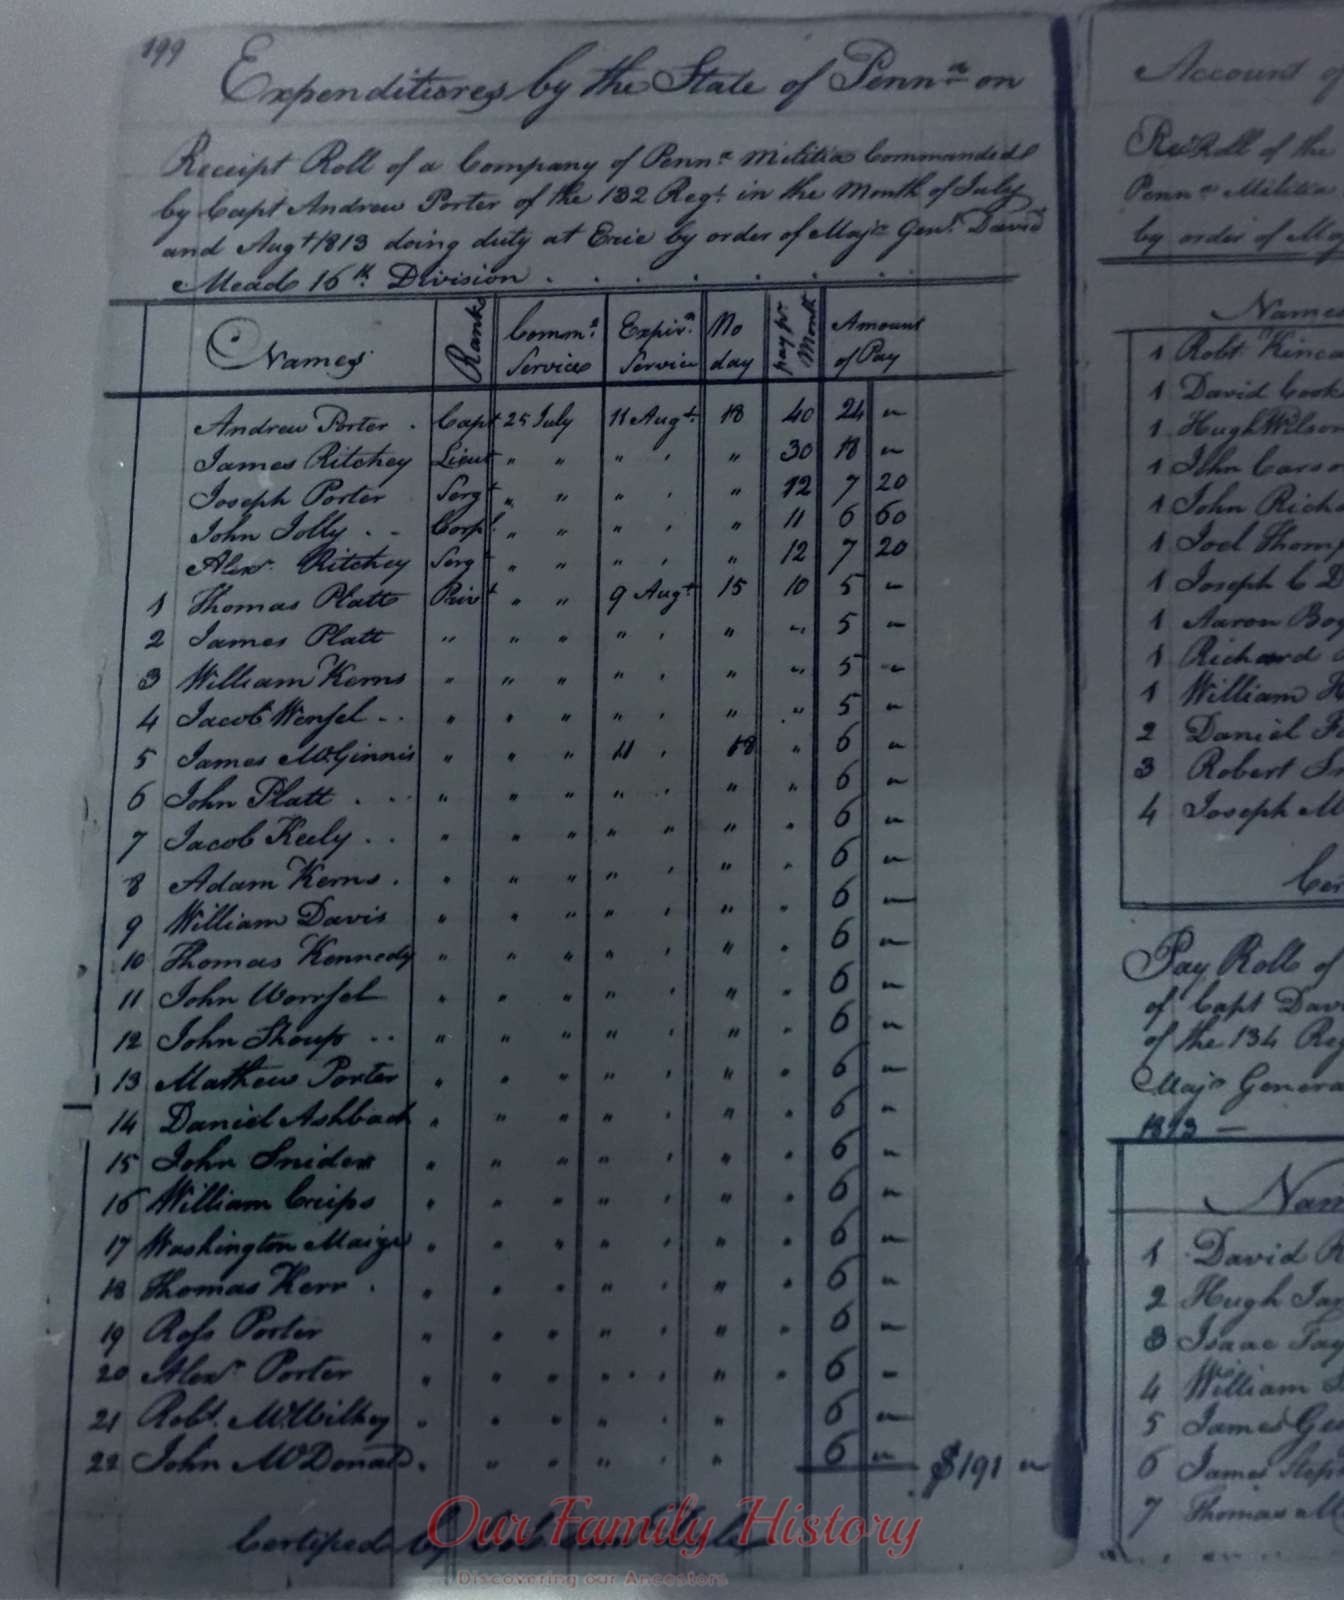 199
Expenditures by the State of Penna on
Receipt Roll of a Company of Penna Militia Commanded
by Capt Andrew Porter of the 132 Regt in the Month of July
and Augt 1813 doing duty at Erie by order of Majr Genl David
Meads 16th Division . . . . . .
Names Rank Comms Service Expirn Service No day pay pr Month Amount of Pay
Andrew Porter . Capt 25 July 11 Augt 18 40 24 "
James Ritchey Lieut " " " ' " 30 18 "
Joseph Porter Sergt " " " ' " 12 7 20
John Jolly . . Corpl " " " ' " 11 6 60
Alexr Ritchey Sergt " " " ' " 12 7 20
1 Thomas Platt Privt " " 9 Augt 15 10 5 "
2 James Platt " " " " ' " " 5 "
3 William Kerns " " " " ' " " 5 "
4 Jacob Wensel . . " " " " ' " " 5 "
5 James McGinnis " " " 11 ' 18 " 6 "
6 John Platt . . . " " " " ' " " 6 "
7 Jacob Keely . . " " " " " " " 6 "
8 Adam Kerns . " " " " ' " " 6 "
9 William Davis " " " " ' " " 6 "
10 Thomas Kennedy " " " " ' " " 6 "
11 John " " " " ' " " 6 "
12 John Shoup . . " " " " ' " " 6 "
13 Mathew Porter " " " " ' " " 6 "
14 Daniel Ashbach " " " " ' " " 6 "
15 John Snider " " " " ' " " 6 "
16 William Crips " " " " ' " " 6 "
17 Washington " " " " ' " " 6 "
18 Thomas Kerr . " " " " ' " " 6 "
19 Ross Porter " " " " ' " " 6 "
20 Alexr Porter " " " " ' " " 6 "
21 Robt. " " " " ' " 6 "
22 John McDonald . " " " ' " 6 " $191 "
Certified by
Our Family History
Discovering our Ancestors
Account of
Roll of the
Penna Militia
by order of Maj
Names
1 Robt Kinca
1 David Cook
1 Hugh Wilson
1 John Carso
1 John Richa
1 Joel Thom
1 Joseph C D
1 Aaron Boy
1 Richard
1 William H
2 Daniel
3 Robert
4 Joseph M
Cer
Pay Roll of
of Capt Davi
of the 134 Reg
Majr Genera
1813 —
Nam
1 David
2 Hugh
3 Isaac Tay
4 William
5 James Ge
6 James Step
7 Thomas M